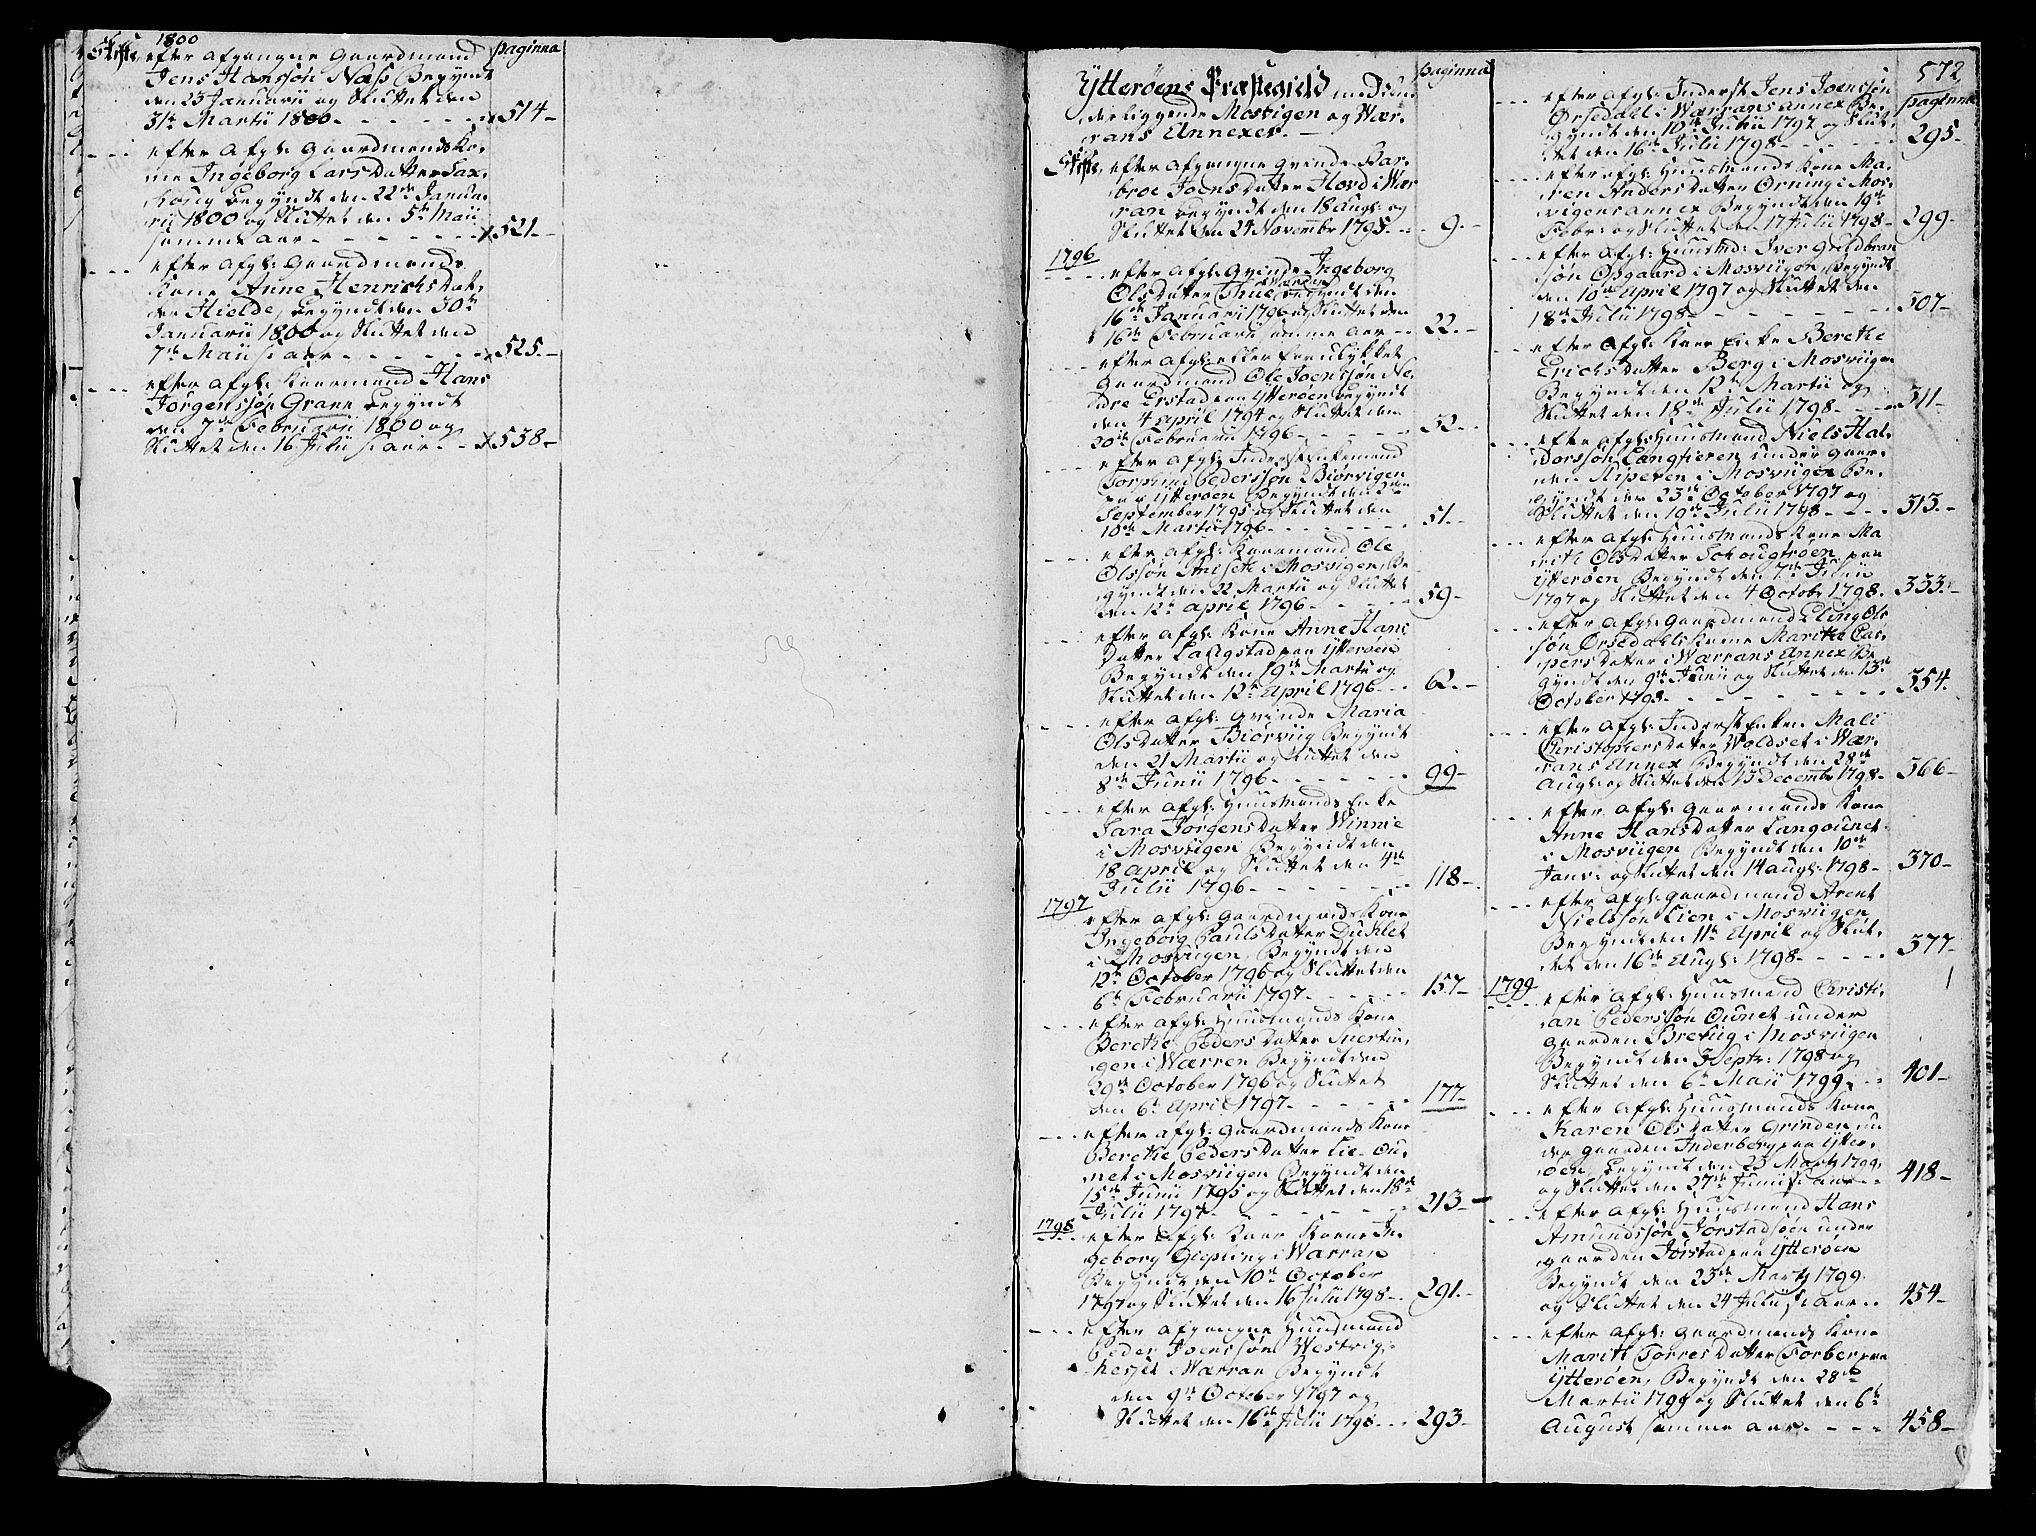 1800
Skifte, efter afgangne Gaardmand
paginna
Jens Hanssøn Næss Begyndt
den 23 Januarii og Sluttet den
31te Martii 1800 - - - 514 -
- - - efter afgl: Gaardmands Ko-
ne Ingeborg Lars Datter Sax-
houg begyndt den 22de Janua-
rii 1800 og Sluttet den 5te Maii
samme aar - - - 521 -
- - - efter afgl: Gaardmands
Kone Anne Henrichs Dat-
ter Hielde, begyndt den 30te
Januarii 1800 og Sluttet den
7de Maii s: aar - - - 525 -
- - - efter afgl: Kaarmand Hans
Jørgenssøn Grane begyndt
den 7de Februarii 1800 og
Sluttet den 16 Julii s: aar - - 538 -
Ytterøens Præstegield med sine
paginna
der liggende Mosvigen og Wær-
rans Annexer. -
Skifte, efter afgangne Qvinde Bar-
broe Joens Datter Hovd i Wær
ran begyndt den 18 Augl: og
Sluttet den 24 Novembr 1795 - - 9. -
1796
- - - efter afgl: Qvinde Ingeborg
Ols Datter Thue Wærran begyndt den
16de Januarii 1796 og Sluttet den
16de Februarii samme aar - - 22. -
- - - efter afgl: eller forulykket
Gaardmand Ole Joenssøn Ne-
dre Erstad paa Ytterøen begyndt
den 4 April 1794 og Sluttet den
20de Februarii 1796 - - - 32 -
- - - efter afgl: Inderst Enkemand
Torsteen Pederssøn Biørvigen
paa Ytterøen Begyndt den 2den
September 1795 og Sluttet den
10de Martii 1796 - - - 51. -
- - - efter afgl: Kaarmand Ole
Olssøn Aniseth i Mosvigen, Be-
gyndt den 22 Martii og Sluttet
den 12te April 1796 - - - 59 -
- - - efter afgl: Kone Anne Hans
Datter Langstad paa Ytterøen
Begyndt den 19de Martii og
Sluttet den 12te April 1796 - - - 62. -
- - - efter afgl: Qvinde Maria
Ols Datter Biørviig Begyndt
den 21 Martii og Sluttet den
8de Junii 1796 - - - 99 -
- - - efter afgl: Huusmands Enke
Sara Jørgens Datter Winnie
i Mosviigen Begyndt den
18 April og Sluttet den 4de
Julii 1796 - - - 118 -
1797
efter afgl: Gaardmands Kone
Ingeborg Pauls Datter Duklet
i Mosviigen, Begyndt den
12te October 1796 og Sluttet den
6te Februarii 1797 - - - 157 -
- - - efter afgl: Huusmands Kone
Berethe Peders Datter Inertin-
gen i Warren Begyndt den
29de October 1796 og Sluttet
den 6te April 1797 - - - 177 -
- - - efter afgl: Gaardmands Kone
Berethe Peders Datter Lie-Ou-
net i Mosviigen Begyndt den
15de Junii 1795 og Sluttet den 18de
Julii 1797 - - - 213 -
1798
- - - efter afgl: Kaar Kone In-
geborg Giepling i Warran
Begyndt den 10de October
1797 og Sluttet den 16 Julii 1798 - - 291. -
- - - efter afgangne Huusmand
Peder Joenssøn Westvig-
hesjet i Warran Begyndt
den 9de October 1797 og
Sluttet den 16de Julii 1798 - - - 293 -
572
paginna
- - - efter afgl: Inderst Jens Joenssøn
Ørsedahl i Warrans Annex Be-
gyndt den 10de Julii 1797 og Slut-
tet den 16de Julii 1798 - - - 295 -
- - - efter afgl: Huusmands Kone Ma-
ren Anders Datter Ørning i Mos-
vigens Annex Begyndt den 19de
Febr: og Sluttet den 17 Julii 1798 - 299 -
- - - efter afgl: Huusmd: Iver Guldbran
søn Opgaard i Mosviigen, Begyndt
den 10de April 1797 og Sluttet den
18de Julii 1798 - - - 307 -
- - - efter afgl: Kaar Enke Berethe
Erichs Datter Berg i Mosviigen
Begyndt den 12te Martii og
Sluttet den 18de Julii 1798 - - - 311 -
- - - efter afgl: Huusmand Niels Hal-
dorssøn Langtieren under Gaar-
den Kiperen i Mosviigen Be-
gyndt den 23de October 1797 og
Sluttet den 19de Julii 1798 - - - 313. -
- - - efter afgl: Huusmands Kone Ma
rith Ols Datter Schougtroen paa
Ytterøen Begyndt den 7de Junii
1797 og Sluttet den 4 Octobr 1798. 333. -
- - - efter afgl: Gaardmand Eling Ols
søn Ørsedahls Kone Marithe Cas-
pers Datter i Warrans Annex Be-
gyndt den 9de Junii og Sluttet den 13de
October 1798 - - - 354.
- - - efter afgl: Inderst Enken Mali
Christophers Datter Woldset i Wær-
rans Annex Begyndt den 28de
Augl: og Sluttet den 13 Decembr 1798 - 366 -
- - - efter afgl: Gaarmands Kone
Anne Hans Datter Langounet
i Mosviigen Begyndt den 10de
Janv: og Sluttet den 14 Augl: 1798 - 370 -
- - - efter afgl: Gaardmand Arent
Nielssøn Lien i Mosviigen
Begyndt den 11te April og Slut-
tet den 16de Augl: 1798 - - - 377 -
1799
efter afgl: Huusmand Christi-
an Pederssøn Ounet under
Gaarden Bretiig i Mosviigen
Begyndt den 3 Septr: 1798 og
Sluttet den 6te Maii 1799. - - 401 -
- - - efter afgl: Huusmands Kone
Karen Ols Datter Grinden un
der Gaarden Inderberg paa Ytter-
øen, begyndt den 23 Martz 1799,
og Sluttet den 27de Junii s: aar - - 418 -
- - - efter afgl: Huusmand Hans
Amundssøn Jørstadsøen under
Gaarden Jørstad paa Ytterøen
Begyndt den 23de Martz 1799
og Sluttet den 24 Julii s: aar - - 454 -
- - - efter afgl: Gaardmands Kone
Marith Torres Datter Forberg paa
Ytterøen, Begyndt den 28de
Martii 1799 og Sluttet den 6te
August samme aar - - - 458 -